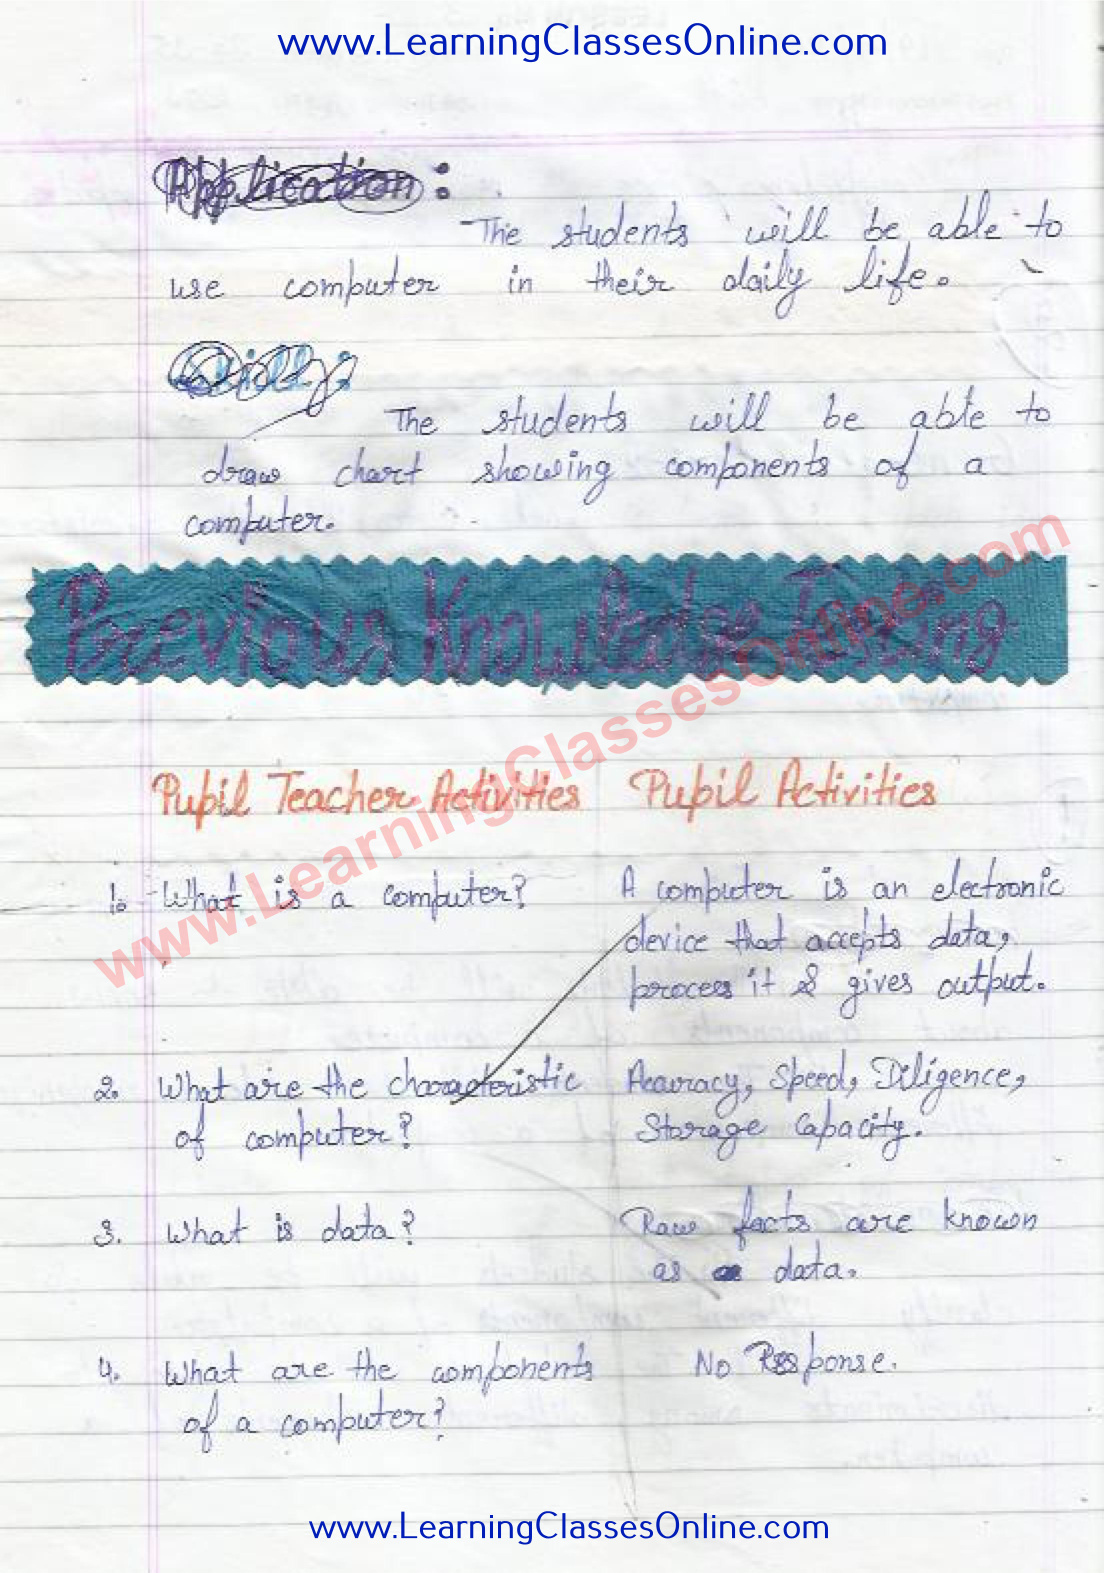 www.LearningClassesOnline.com
Application :
The students will be able to
use computer in their daily life.
Skill :
The students will be able to
draw chart showing components of a
computer.
Previous Knowledge Testing
www.LearningClassesOnline.com
Pupil Teacher Activities Pupil Activities
1. What is a computer? A computer is an electronic
device that accepts data,
process it & gives output.
2. What are the characteristic Accuracy, Speed, Diligence,
of computer? Storage Capacity.
3. What is data? Raw facts are known
as data.
4. What are the components No Response.
of a computer?
www.LearningClassesOnline.com